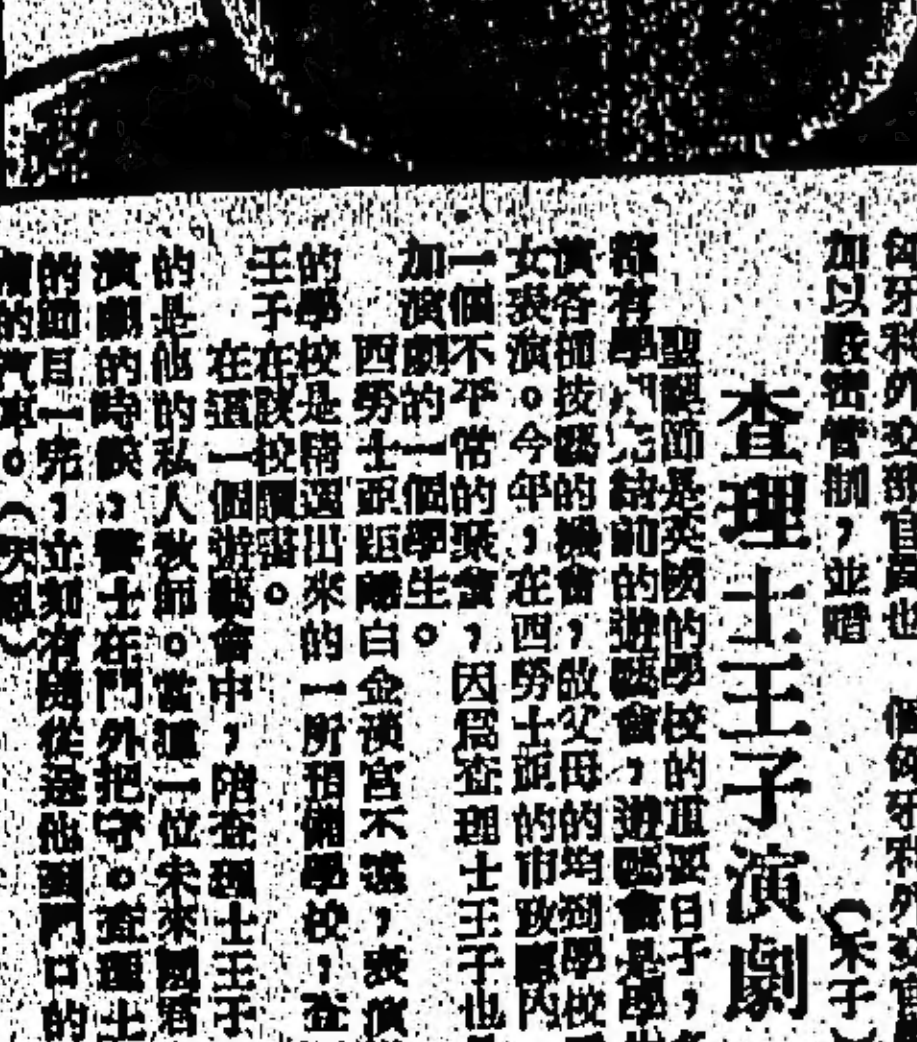 匈牙利外交
加以嚴密管制，並
個匈牙利外交官
（朱子
查理士王子演劇
聖誕節是英國的學校的重要日子，
都有學期完結前的遊藝會，遊藝會是學
演各種技藝的機會，故父母的均到學校
女表演。今年，在西勞士頓的市政廳內
一個不平常的集會，因爲查理士王子也
加演劇的一個學生。
西勞士頓距離白金漢宮不遠，表演
的學校是精選出來的一所預備學校，查
王子在該校讀書。
在這一個遊藝會中，陪查理士王子
的是他的私人教師。當這一位未來國君
演劇的時候，警士在門外把守。查理士
的節目一完，立刻有隨從送他到門口的
的汽車。